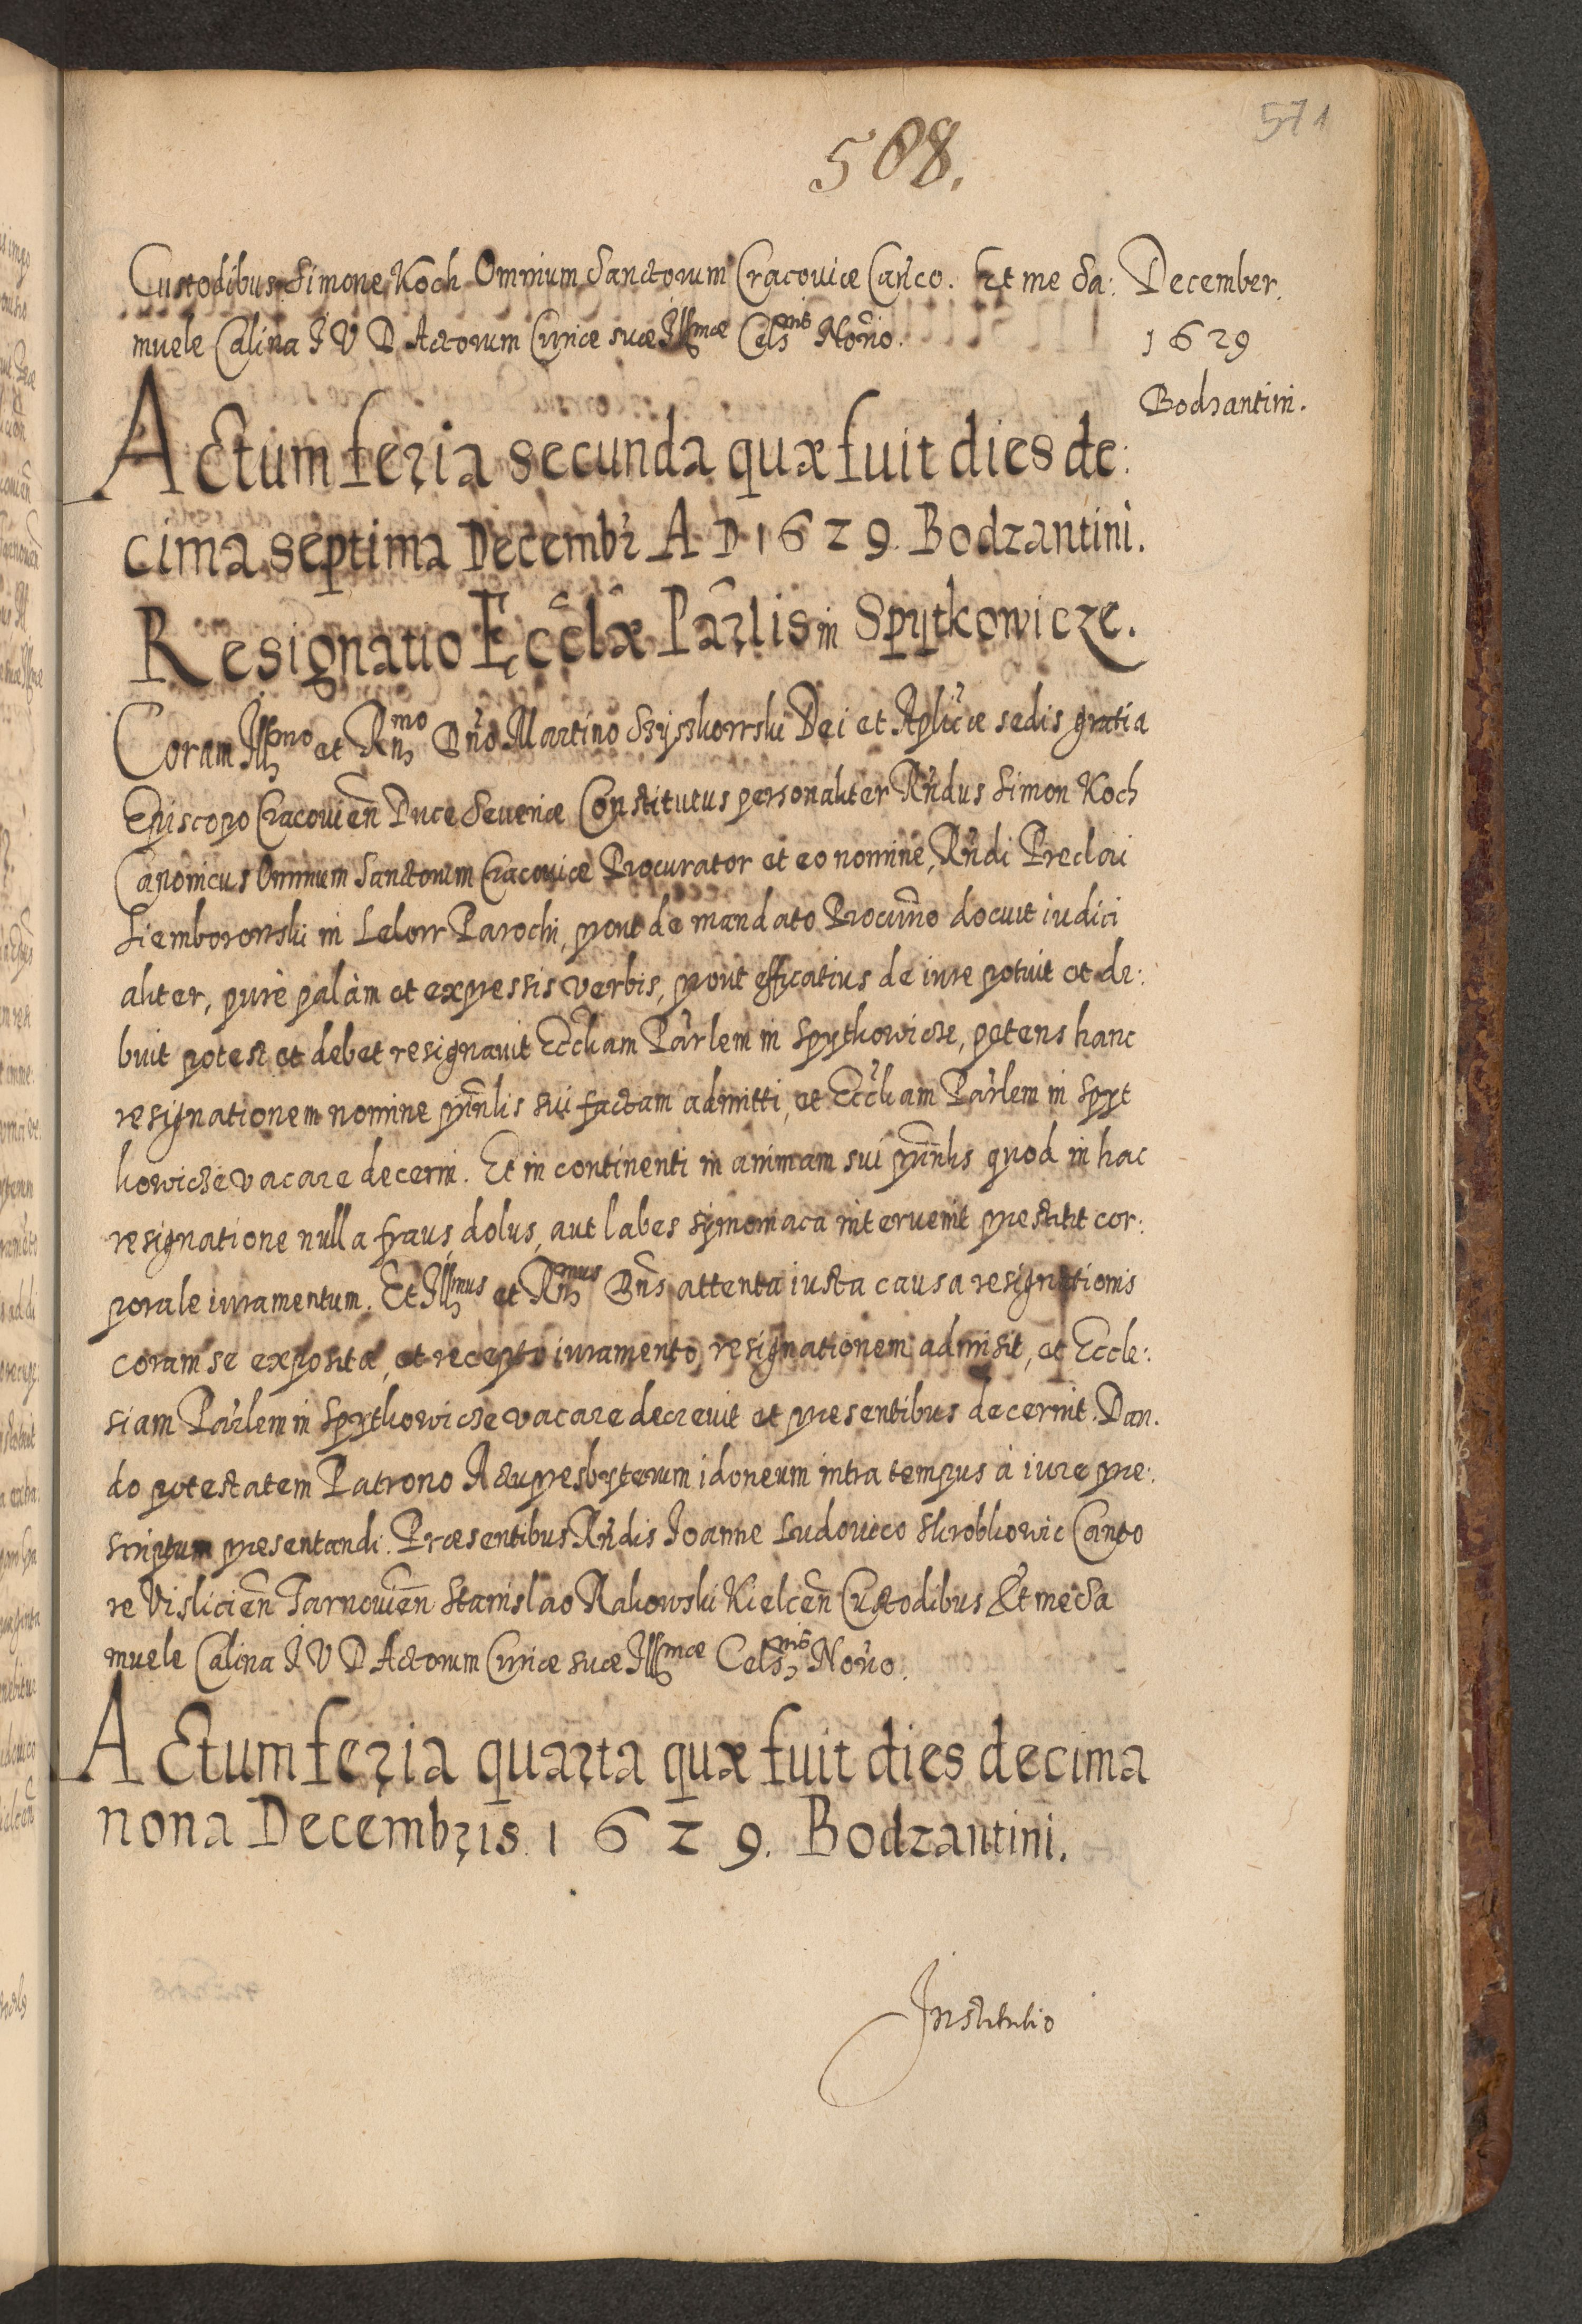 571
508.
Custodibus, Simone Koch Omnium Sanctorum Cracoviæ Can̄co. Et me Sa:
December.
muele Calina I V D Actorum Curiæ suæ Illmæ Cels̄nis Nōrio.
1629
Bodzantini.
Actum feria secunda quæ fuit dies de:
cima septima Decembr A D 1629. Bodzantini.
Resignatio Eccl̄æ Par̄lis in Spytkowicze.
Coram Illmo et Rn̄mo Dn̄o Martino Szyszkowski Dei et Aplicæ sedis gratia
Episcopo Cracovien̄ Duce Severiæ Constitutus personaliter Rn̄dus Simon Koch
Canonicus Omnium Sanctorum Cracoviæ Procurator et eo nomine, Rn̄di Preclai
Siemborowski in Lelow Parochi, prout de mandato Procur̄no docuit iudici
aliter, purè palàm et expressis verbis, prout efficatius de iure potuit et de:
buit potest et debet resignavit Eccliam Par̄lem in Spytkowicze, petens hanc
resignationem nomine prin̄lis sui factam admitti, et Eccliam Par̄lem in Spyt
kowicze vacare decerni. Et in continenti in animam sui prin̄lis quod in hac
resignatione nulla fraus, dolus, aut labes symoniaca intervenit prestitit cor:
porale iuramentum. Et Illmus et Rn̄mus Dn̄s attenta iusta causa resignationis
coram se exposita, et recepto iuramento, resignationem admisit, et Eccle:
siam Par̄lem in Spytkowicze vacare decrevit et presentibus decernit. Dan.
do potestatem Patrono Actu presbyterum idoneum intra tempus à iure pre:
scriptum presentandi. Præsentibus Rn̄dis Joanne Ludovico Skrobkowic Canto
re Vislicien̄ Tarnovien̄ Stanislao Rakowski Kielcen̄ Custodibus Et me Sa
muele Calina I V D Actorum Curiæ suæ Illmæ Cels̄nis Nōrio.
Actum feria quarta quæ fuit dies decima
nona Decembris 1629. Bodzantini.
Institutio